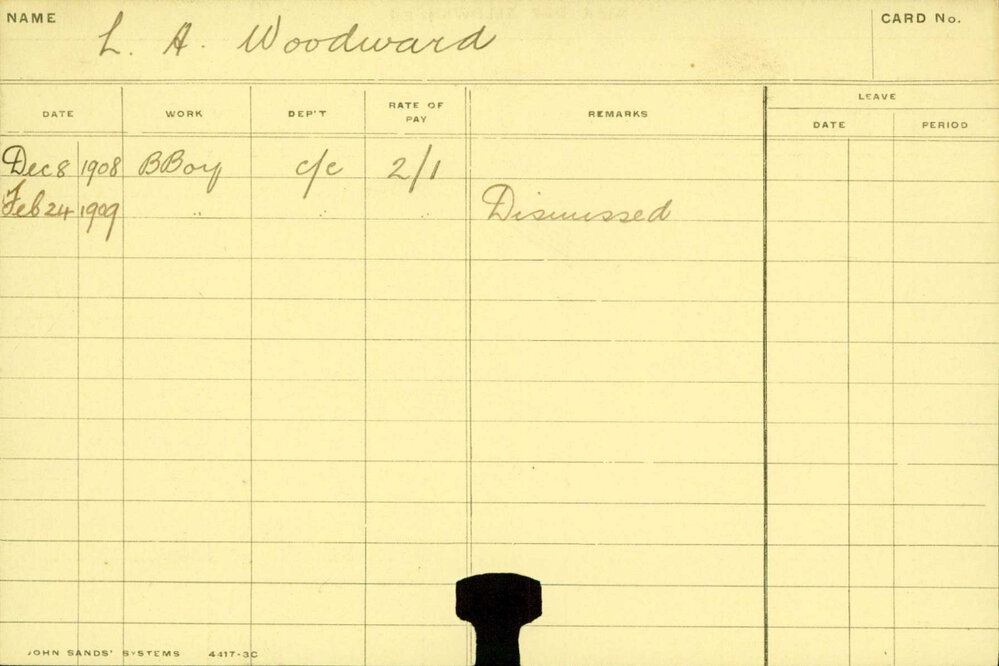 NAME L. A. Woodward CARD No.
LEAVE
DATE WORK DEP'T RATE OF PAY REMARKS DATE PERIOD
Dec 8 1908 BBoy c/c 2/1
Feb 24 1909 " " " Dismissed
JOHN SANDS' SYSTEMS 4417-3C